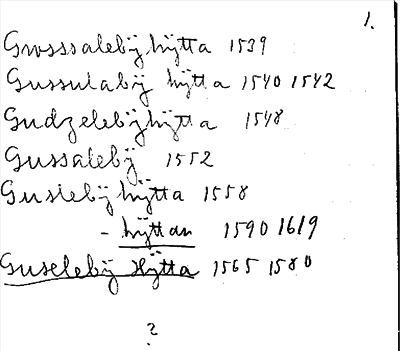 1.
Grosssalebÿ hÿtta 1539
Gussulabÿ hÿtta 1540 1542
Gudzelebÿhÿtta 1548
Gussalebÿ 1552
Guslebÿ hÿtta 1558
- hÿttan 1590 1619
Guselebÿ Hÿtta 1565 1580
?